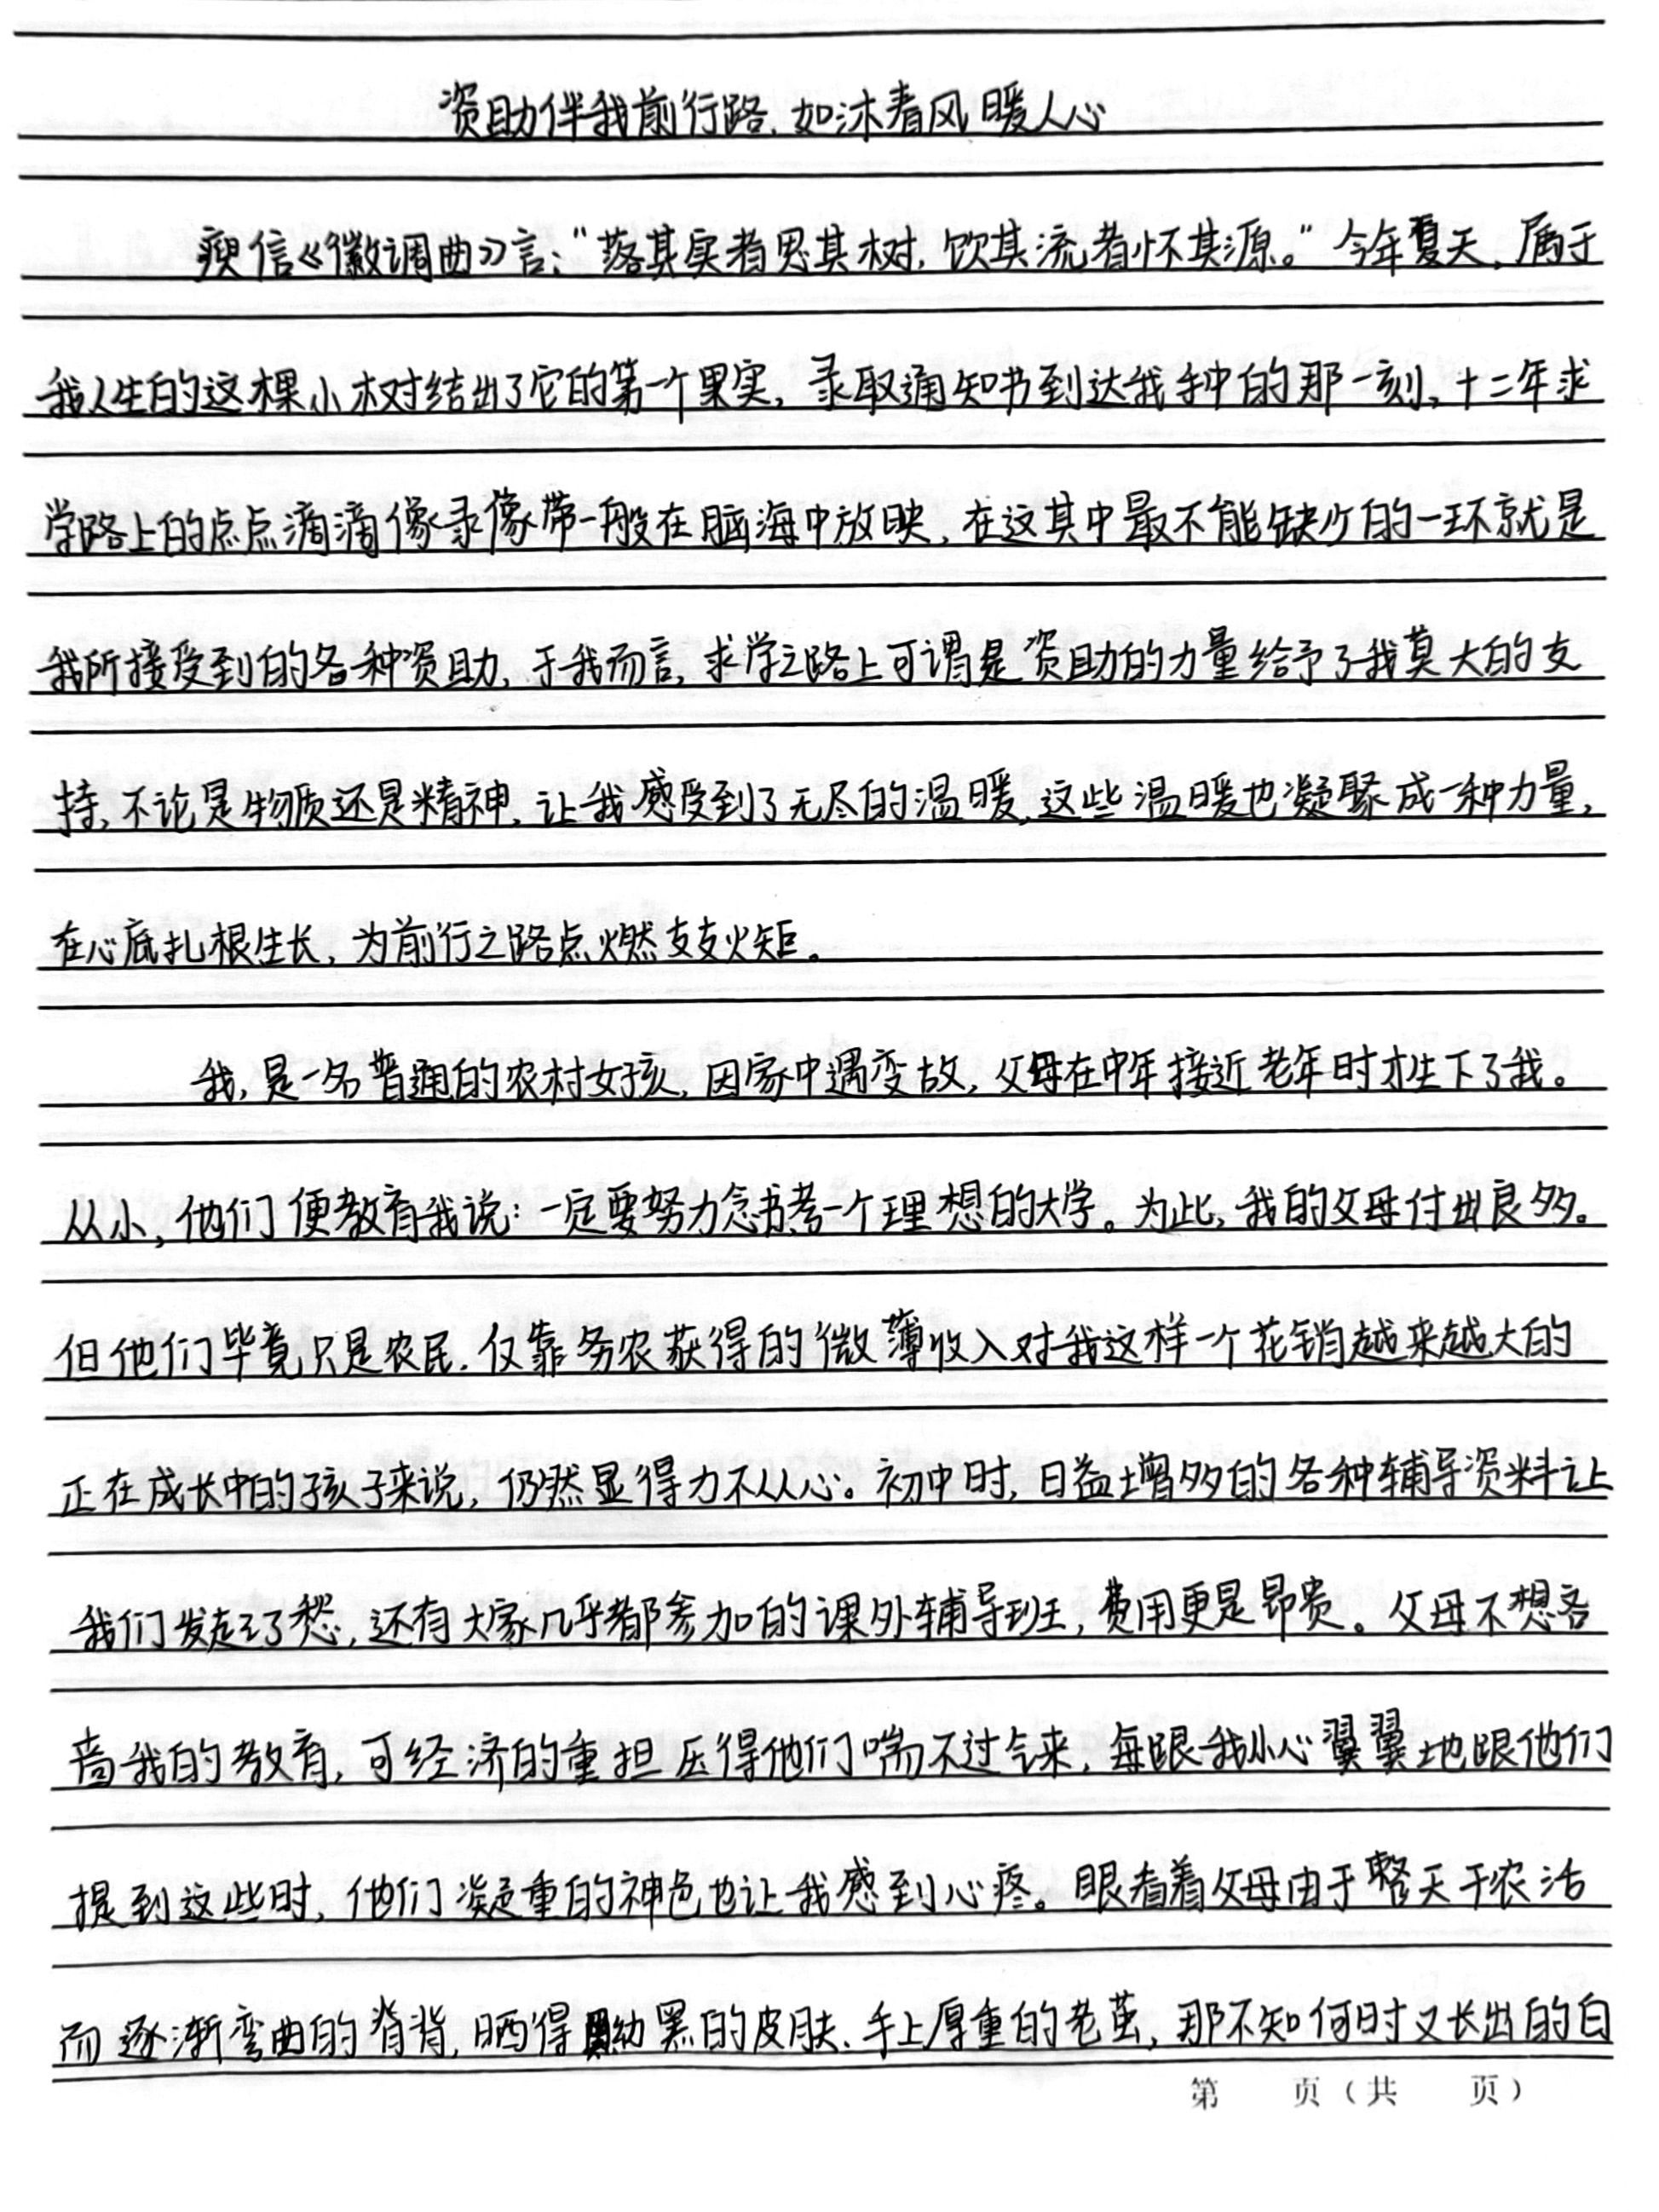 资助伴我前行路,如沐春风暖人心
瘐信《徽调曲》言:“落其实者思其树,饮其流者怀其源。”今年夏天,属于
我人生的这棵小树结出了它的第一个果实,录取通知书到达我手中的那一刻,十二年求
学路上的点点滴滴像录像带一般在脑海中放映,在这其中最不能缺少的一环就是
我所接受到的各种资助,于我而言,求学之路上可谓是资助的力量给予了我莫大的支
持,不论是物质还是精神,让我感受到了无尽的温暖,这些温暖也凝聚成一种力量,
在心底扎根生长,为前行之路点燃支支火炬。
我,是一名普通的农村女孩,因家中遇变故,父母在中年接近老年时才生下了我。
从小,他们便教育我说:一定要努力念书考一个理想的大学。为此,我的父母付出良多。
但他们毕竟只是农民,仅靠务农获得的微薄收入对我这样一个花销越来越大的
正在成长中的孩子来说,仍然显得力不从心。初中时,日益增多的各种辅导资料让
我们发起了愁,还有大家几乎都参加的课外辅导班,费用更是昂贵。父母不想吝
啬我的教育,可经济的重担压得他们喘不过气来,每跟我小心翼翼地跟他们
提到这些时,他们凝重的神色也让我感到心疼。眼看着父母由于整天干农活
而逐渐弯曲的脊背,晒得黝黑的皮肤、手上厚重的老茧,那不知何时又长出的白
第 页(共 页)